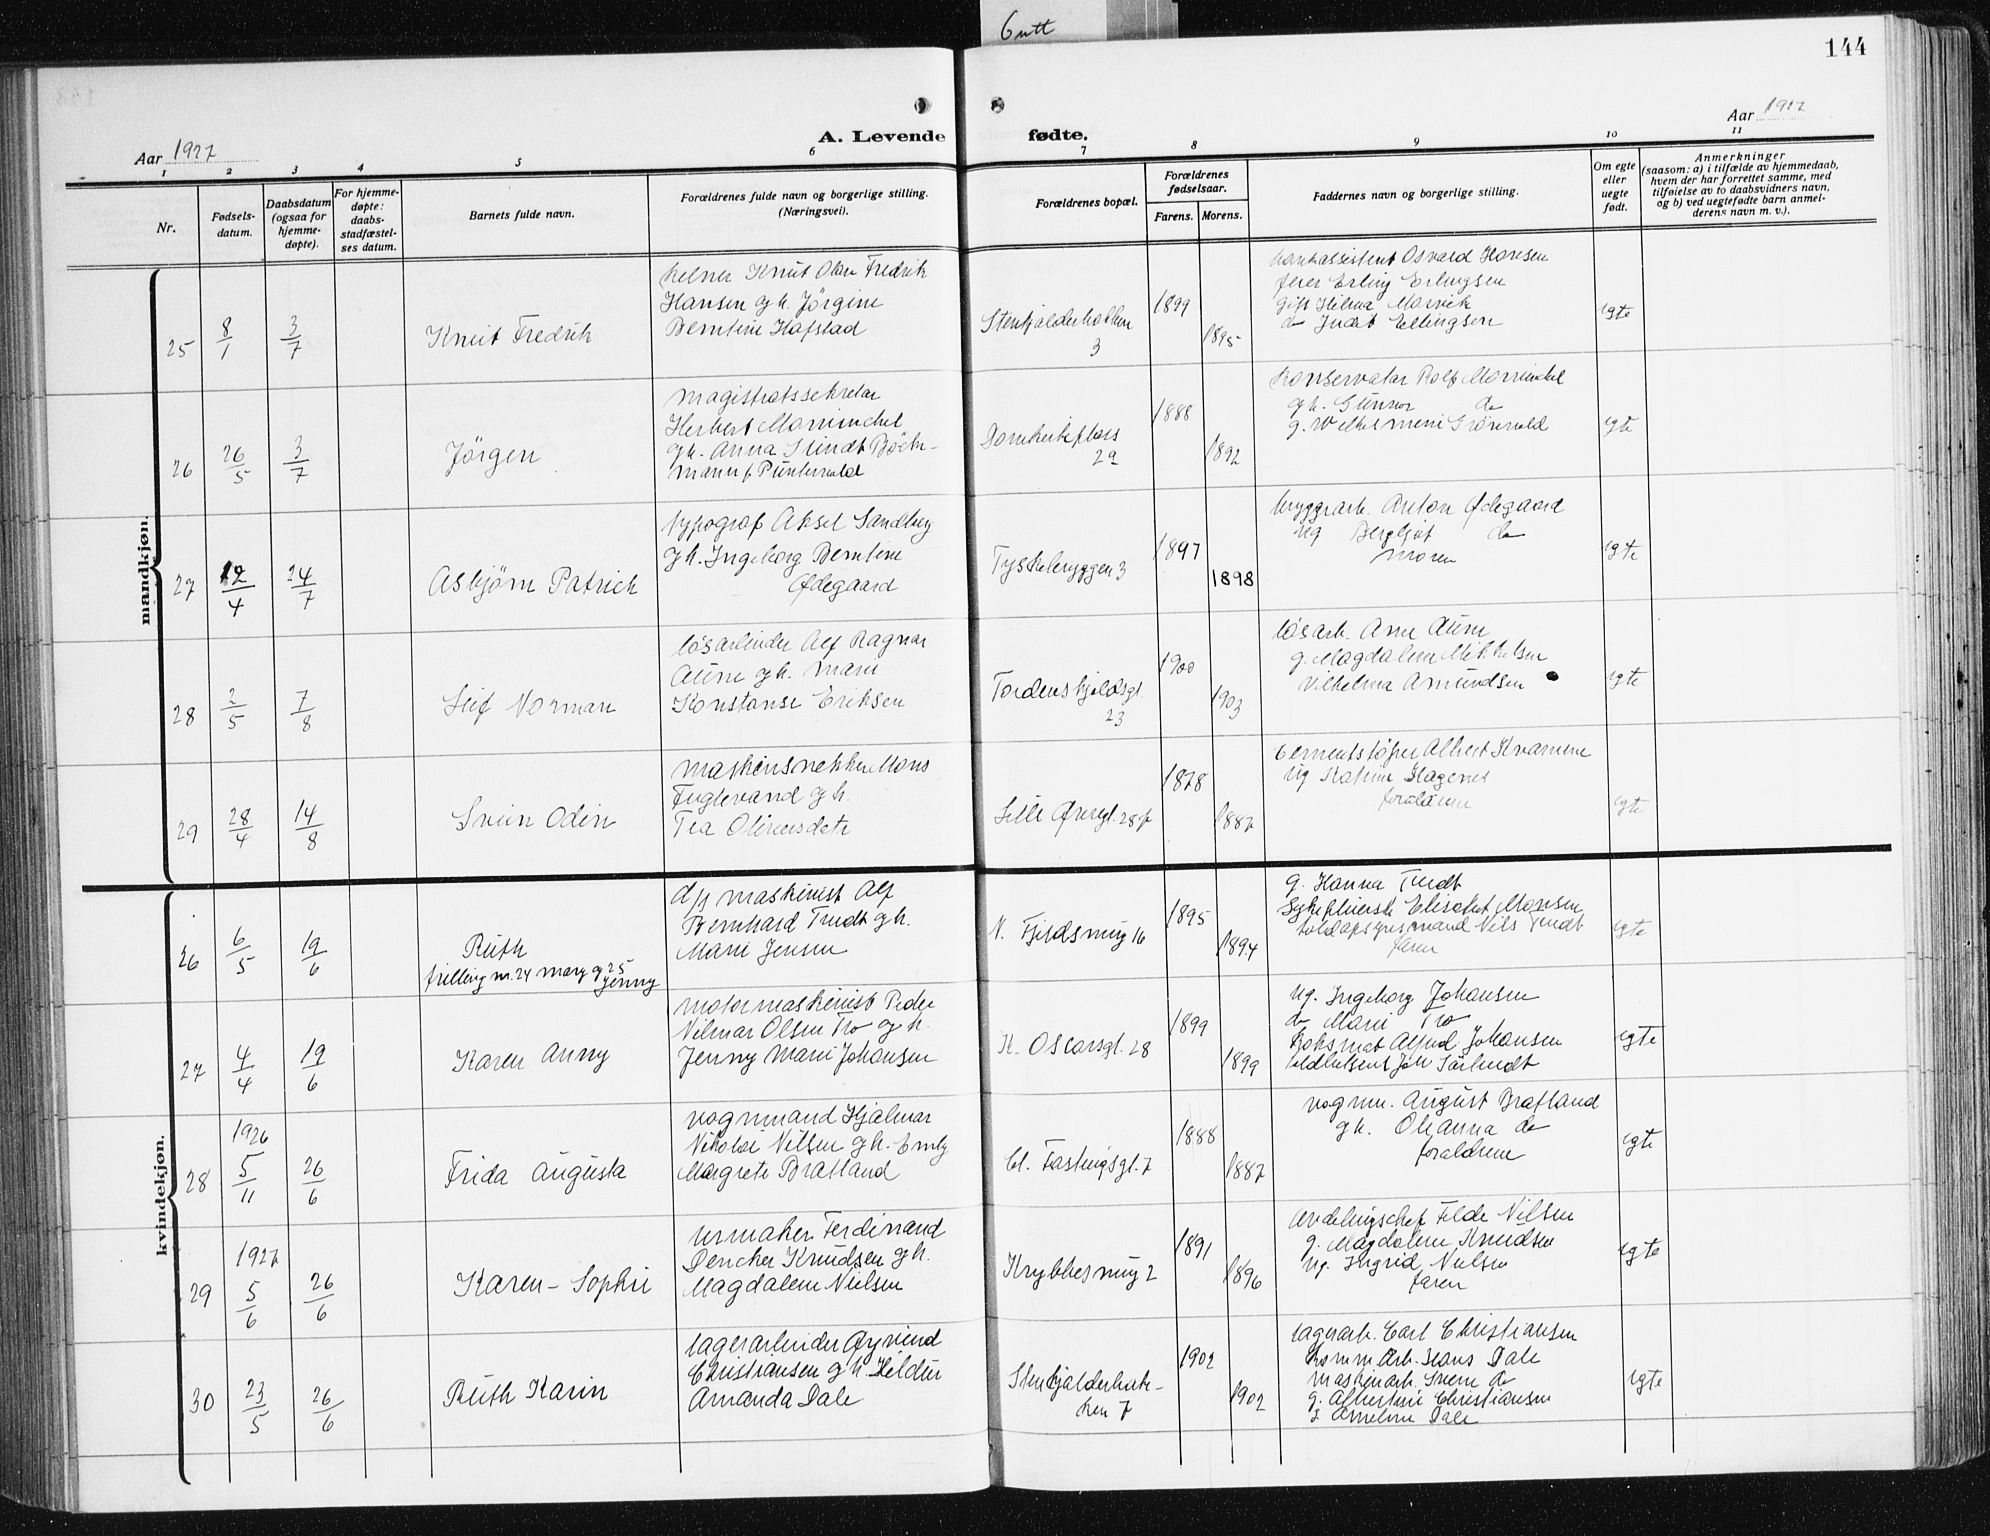 Gutt
144
A. Levende fødte.
Aar 1927
Aar 1927
1 2 3 4 5 6 7 8 9 10 11
Nr.
Fødsels-
datum.
Daabsdatum
(ogsaa for
hjemme-
døpte).
For hjemme-
døpte:
daabs-
stadfæstel-
ses datum.
Barnets fulde navn.
Forældrenes fulde navn og borgerlige stilling.
(Næringsvei).
Forældrenes bopæl.
Forældrenes
fødselsaar.
Farens. Morens.
Faddernes navn og borgerlige stilling.
Om egte
eller
uegte
født.
Anmerkninger
(saasom: a) i tilfælde av hjemmedaab,
hvem der har forrettet samme, med
tilføielse av to daabsvidners navn,
og b) ved uegtefødte barn anmel-
derens navn m. v.).
mandkjøn.
25
8/1
3/7
Knut Fredrik
kelner Knut Olav Fredrik
Hansen og h. Jörgine
Berntine Hafstad
Stenkjelderbakken
3
1899
1895
bankassistent Osvard Hansen
Erling Erlingsen
gift Hilma
do Ellingsen
egte
26
26/5
3/7
Jörgen
magistratssekretær
Herbert
og h. Anna Sundt Böch-
mann f.
Domkirkeplass
2a
1888
1892
konservator Rolf
og h. Gunnor do
g.
egte
27
12/4
24/7
Asbjørn Patrick
typograf Aksel Sandberg
og h. Ingeborg Berntine
Ødegaard
Tyskebryggen 3
1897
1898
bryggearb. Anton Ødegaard
ug Bergljot do
moren
egte
28
2/5
7/8
Leif Norman
løsarbeider Alf Ragnar
Aune og h. Marie
Konstanse Eriksen
Tordenskjoldsgt.
23
1900
1903
løsarb. Arne Aune
g. Magdalene Mikkelsen
Vilhelmina Amundsen
egte
29
28/4
14/8
Svein Odin
maskinsnekker Mons
Fuglevand og h.
Tea
Lille Øvregt. 28
1878
1887
cementstøper Albert Kvamme
ug Katrine Hagenes
forældrene
egte
kvindekjøn.
26
6/5
19/6
Ruth
trilling m. 24 Mary og 25
Jenny
d/s maskinist Alf
Bernhard Tundt og h.
Marie Jensen
N. Fjeldsmug 16
1895
1894
g. Hanna Tundt
Sykepleierske Elisabet Monsen
toldopsynsmand Nils Tundt
faren
egte
27
4/4
19/6
Karen Anny
motormaskinist Peder
Vilmar Olsen Tro og h.
Jenny Marie Johansen
K. Oscarsgt. 28
1899
1899
ug. Ingeborg Johansen
do Marie Tro
Johansen
egte
28
1926
5/11
26/6
Frida Augusta
vognmand Hjalmar
Nikolai Nilsen og h. Emly
Margrete Bratland
Cl. Fastingsgt. 7
1888
1887
vognm. August Bratland
og h. Olianna do
forældrene
egte
29
1927
5/6
26/6
Karen-Sophie
urmaker Ferdinand
Dencker Knudsen og h.
Magdalene Nielsen
Krybbesmug 2
1891
1896
avdelingschef Nilsen
g. Magdalene Knudsen
ug. Ingrid Nielsen
faren
egte
30
23/5
26/6
Ruth Karin
lagerarbeider Øyvind
Christiansen og h. Hildur
Amanda Dale
Stenkjelderbak-
ken 7
1902
1902
lagerarb. Carl Christiansen
komm.arb. Hans Dale
maskinarb. Sverre do
g. Albertine Christiansen
g. Emeline Dale
egte